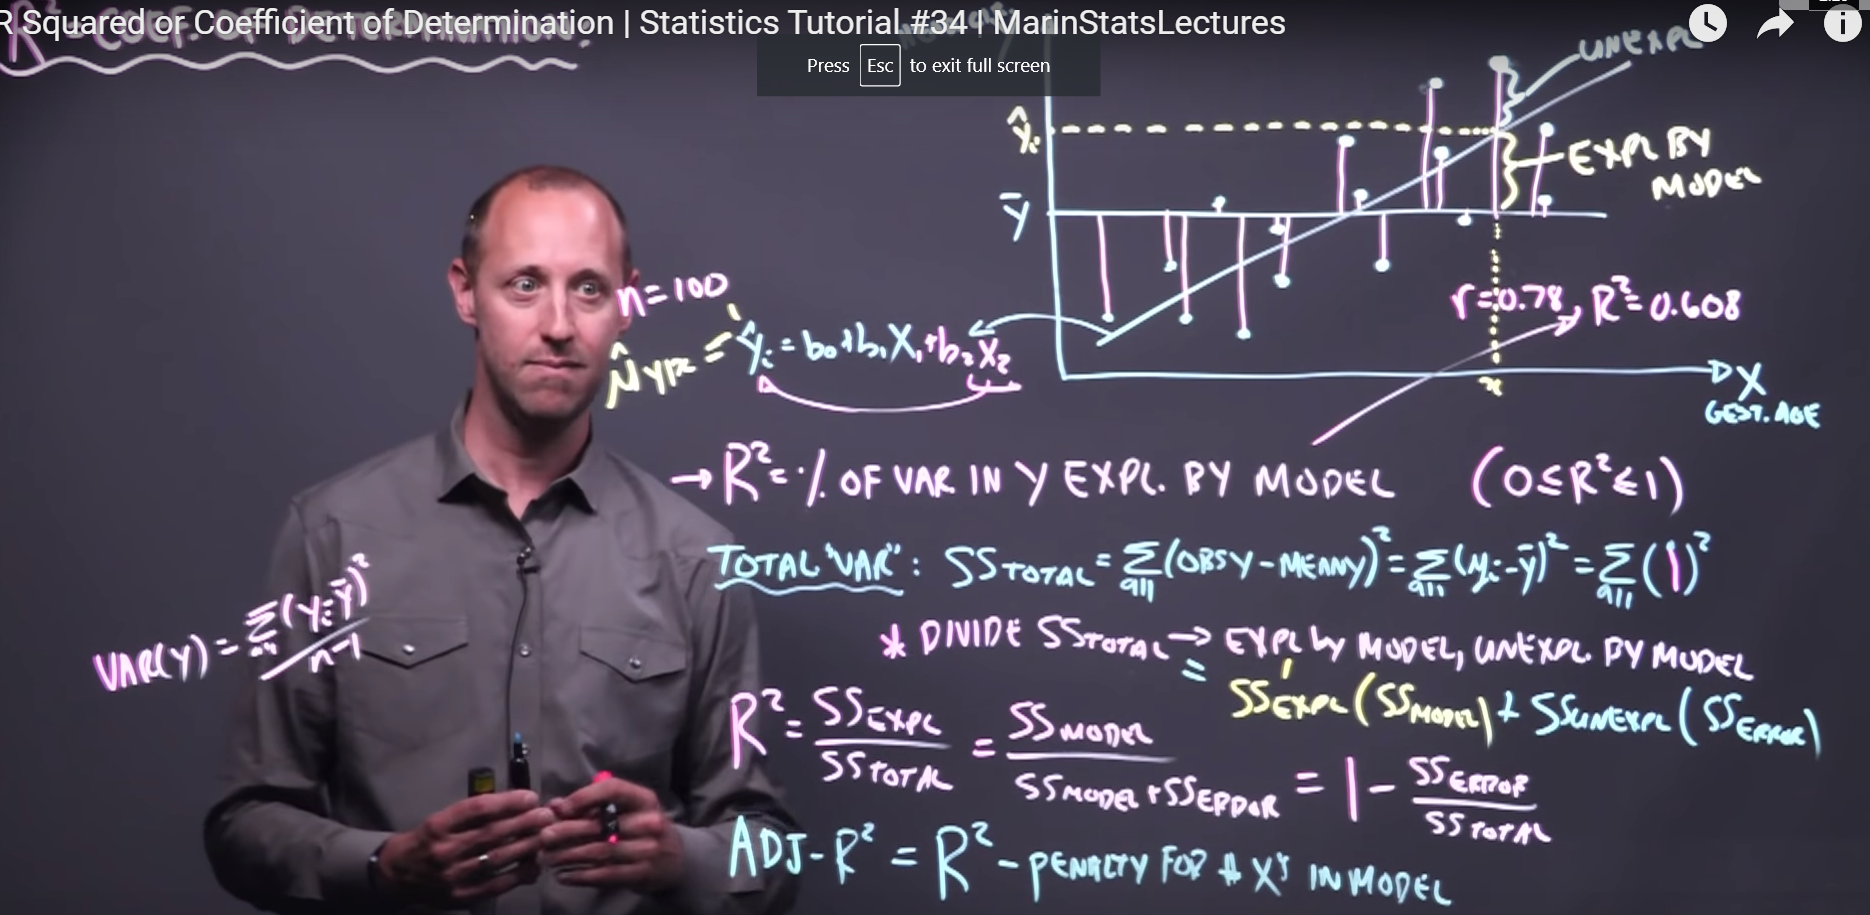 R Squared or Coefficient of Determination | Statistics Tutorial #34 | MarinStatsLectures
Press Esc to exit full screen
R² COEF. OF DETERMINATION:
UNEXPL
Ŷᵢ
EXPL BY
MODEL
Ȳ
n=100
r=0.78, R²=0.608
μ̂Y|X = Ŷᵢ = b₀+b₁X₁+b₂X₂
x
X
GEST. AGE
→ R² = % OF VAR IN Y EXPL. BY MODEL (0≤R²≤1)
TOTAL "VAR": SSTOTAL = Σall(OBSY-MEANY)² = Σall(yᵢ-ȳ)² = Σall(|)²
VAR(Y) = Σall(Yᵢ-Ȳ)² / n-1
* DIVIDE SSTOTAL → EXPL by MODEL, UNEXPL. BY MODEL
= SSEXPL (SSMODEL) + SSUNEXPL (SSERROR)
R² = SSEXPL / SSTOTAL = SSMODEL / SSMODEL+SSERROR = 1 - SSERROR / SSTOTAL
ADJ-R² = R² - PENALTY FOR # X's IN MODEL